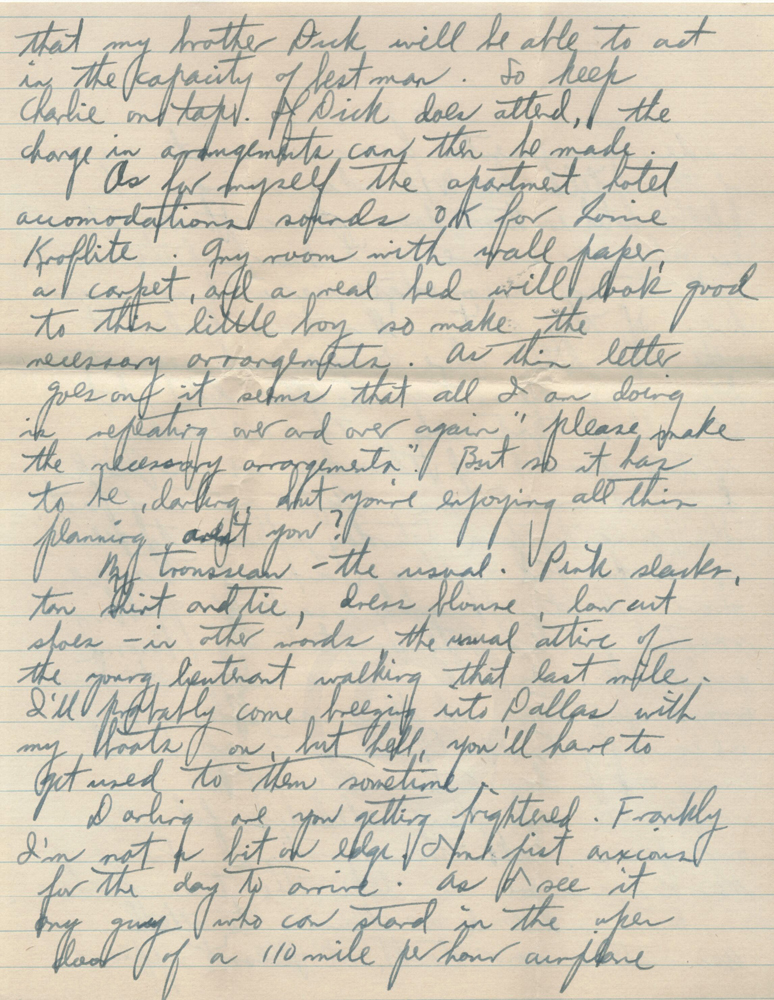 that my brother Dick will be able to act
in the capacity of best man. So keep
Charlie on tap. If Dick does attend, the
change in arrangements can then be made.
As for myself the apartment hotel
accomodations sounds OK for Louie
Kroflite. Any room with wall paper,
a carpet, and a real bed will look good
to this little boy so make the
necessary arrangements. As this letter
goes on it seems that all I am doing
is repeating over and over again "please make
the necessary arrangements". But so it has
to be, darling, but you're enjoying all this
planning aren't you?
My trousseau - the usual. Pink slacks,
tan shirt and tie, dress blouse, low cut
shoes - in other words, the usual attire of
the young lieutenant walking that last mile.
I'll probably come breezing into Dallas with
my boots on, but hell, you'll have to
get used to them sometime.
Darling are you getting frightened. Frankly
I'm not a bit on edge. I'm just anxious
for the day to arrive. As I see it
any guy who can stand in the open
door of a 110 mile per hour airplane